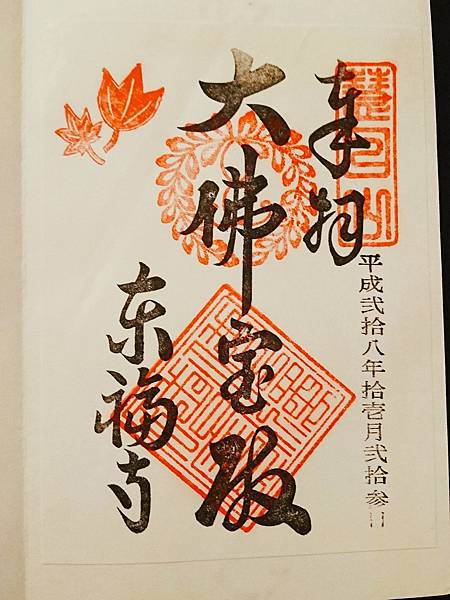 奉拝
慧日山
平成弐拾八年拾壱月弐拾参日
大佛宝殿
東福寺